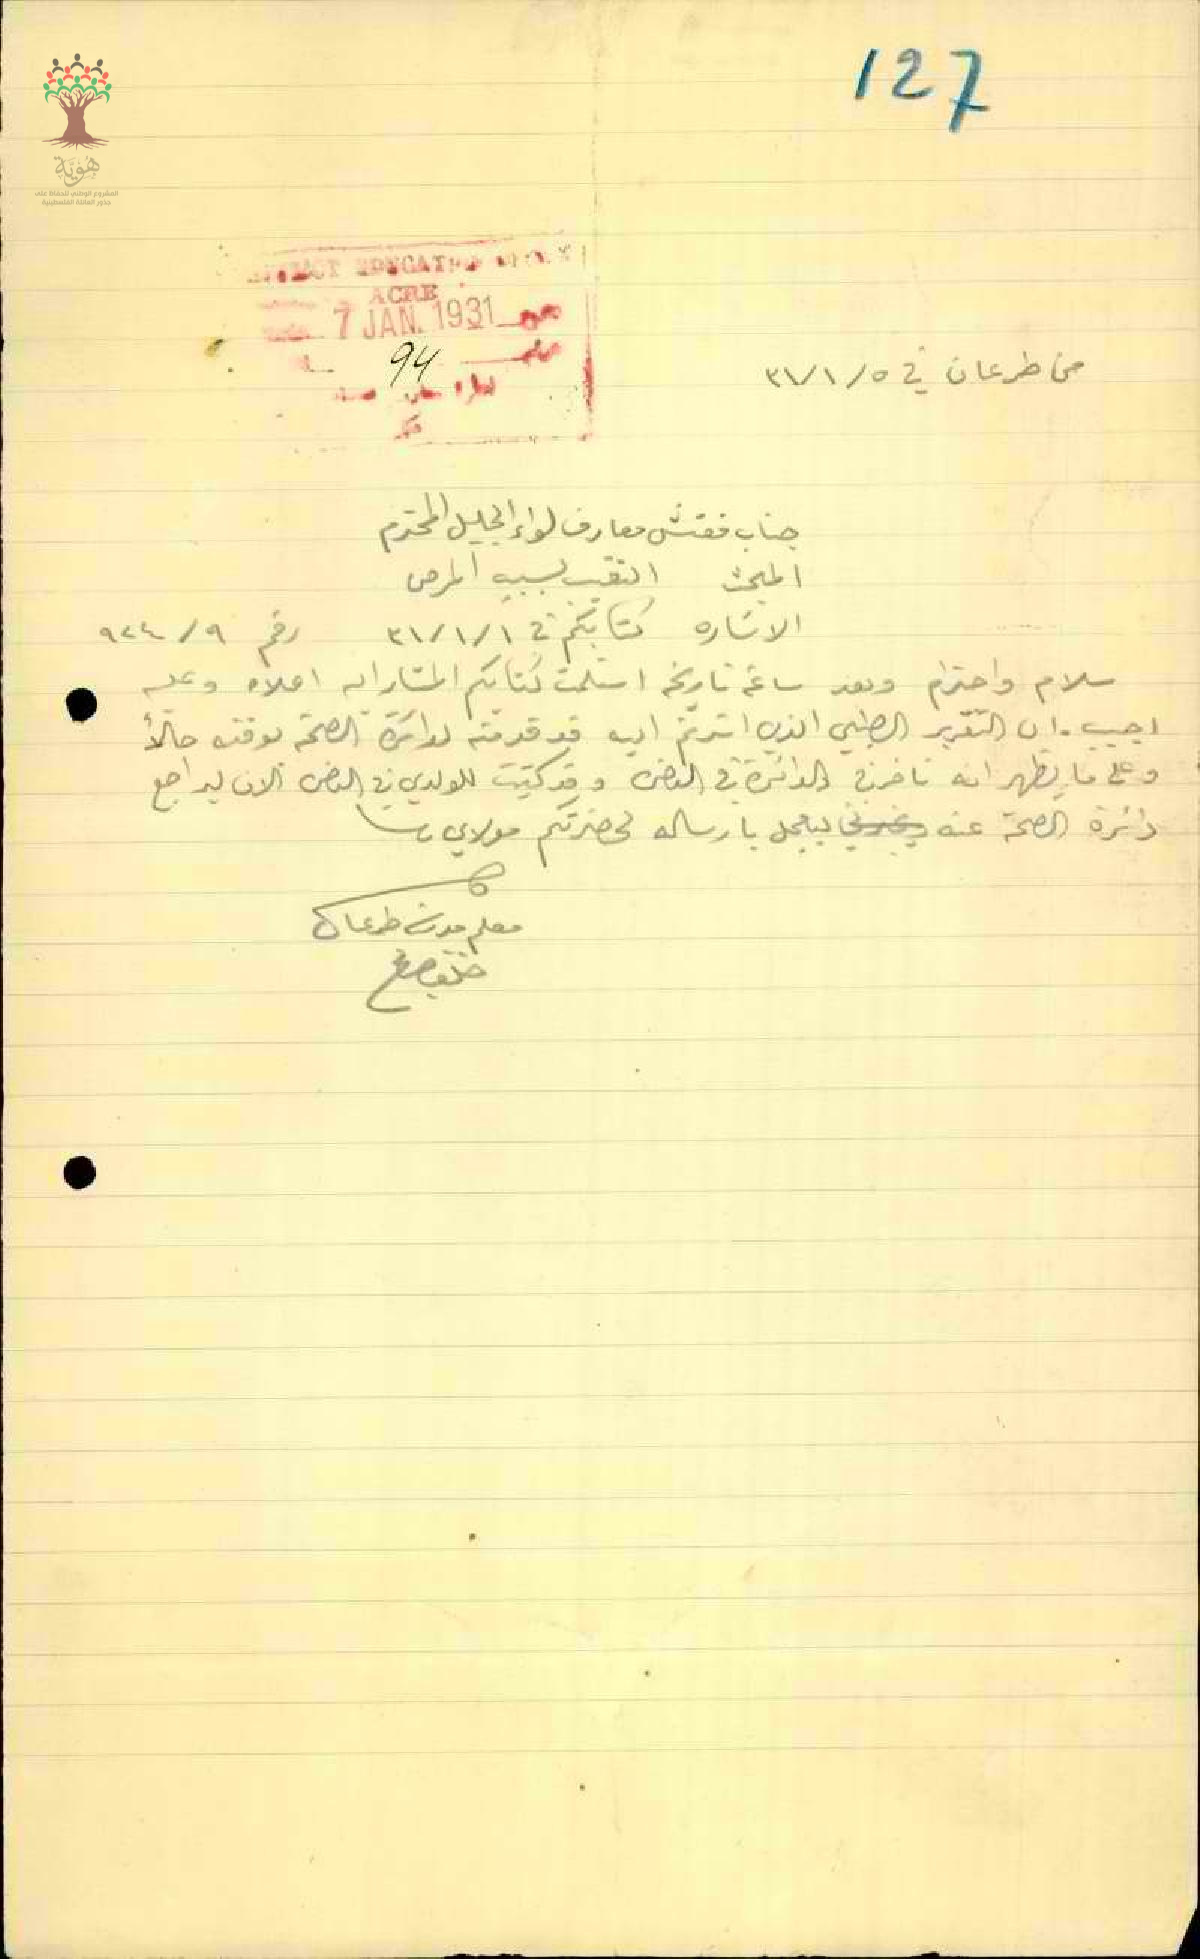 127
هُوِيَّة
المشروع الوطني للحفاظ على
جذور العائلة الفلسطينية
ACRE
7 JAN. 1931
94
من طرعان في ٥/١/٣١
جناب مفتش معارف لواء الجليل المحترم
المبحث التغيب بسبب المرض
الاشاره كتابكم في ٣١/١/١ رقم ٩/٩٢٤
سلام واحترام وبعد ساعة تاريخه استلمت كتابكم المشار اليه اعلاه وعليه
اجيب. ان التقرير الطبي الذي اشرتم اليه قد قدمته لدائرة الصحة بوقته حالاً
وعلى ما يظهر انه تأخر في الدائرة في وقد كتبت لوالدي في الان ليراجع
دائرة الصحة عنه ليعجل بارساله لحضرتكم مولاي
معلم مدرسة طرعان